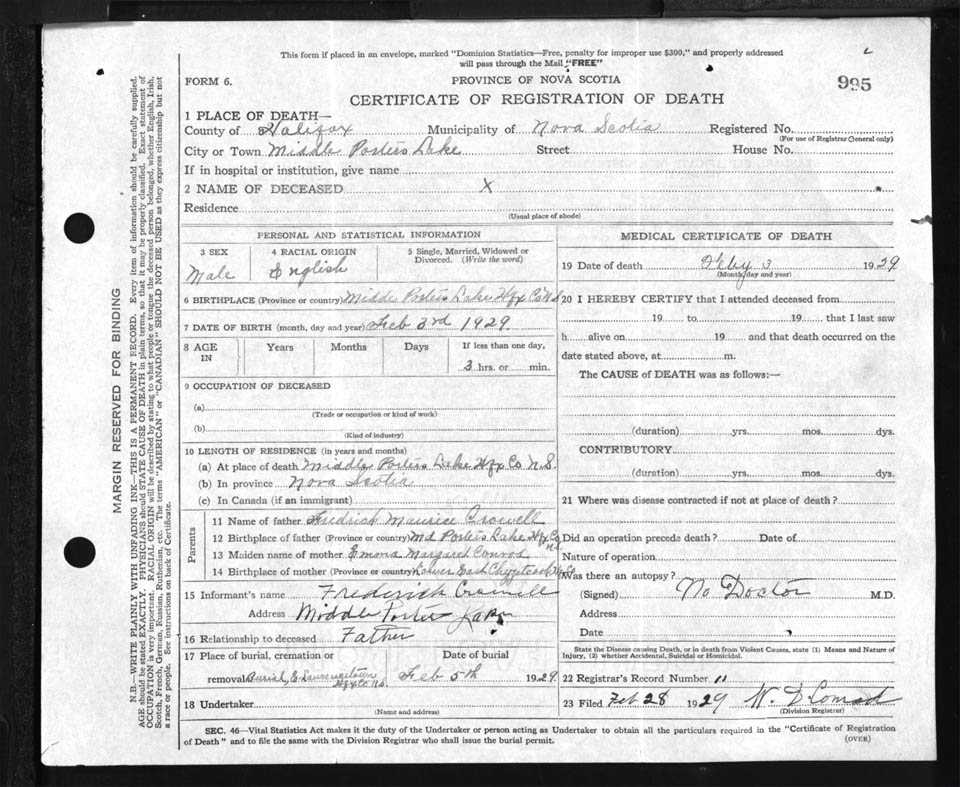 This form if placed in an envelope, marked "Dominion Statistics—Free, penalty for improper use $300," and properly addressed
will pass through the Mail "FREE"
FORM 6.
PROVINCE OF NOVA SCOTIA
995
CERTIFICATE OF REGISTRATION OF DEATH
1 PLACE OF DEATH—
County of Halifax Municipality of Nova Scotia Registered No.
(For use of Registrar General only)
City or Town Middle Porters Lake Street House No.
If in hospital or institution, give name
2 NAME OF DECEASED X
Residence
(Usual place of abode)
PERSONAL AND STATISTICAL INFORMATION
3 SEX
Male
4 RACIAL ORIGIN
English
5 Single, Married, Widowed or
Divorced. (Write the word)
6 BIRTHPLACE (Province or country) Middle Porters Lake Hfx Co N.S
7 DATE OF BIRTH (month, day and year) Feb 3rd 1929
8 AGE
IN
Years
Months
Days
If less than one day,
3 hrs. or min.
9 OCCUPATION OF DECEASED
(a)
(Trade or occupation or kind of work)
(b)
(Kind of industry)
10 LENGTH OF RESIDENCE (in years and months)
(a) At place of death Middle Porters Lake Hfx Co N.S.
(b) In province Nova Scotia
(c) In Canada (if an immigrant)
Parents
11 Name of father Fredrick Maurice Crowell
12 Birthplace of father (Province or country) Md Porters Lake Hfx Co
N.S.
13 Maiden name of mother Emma Margaret Conrod
14 Birthplace of mother (Province or country) Lower East Chezzetcook Hfx Co
15 Informant's name Frederick Crowell
Address Middle Porters Lake
16 Relationship to deceased Father
17 Place of burial, cremation or
Date of burial
removal Burial, E. Lawrencetown
Hfx Co N.S. Feb 5th 1929
18 Undertaker
(Name and address)
MEDICAL CERTIFICATE OF DEATH
19 Date of death Feby 3 1929
(Month, day and year)
20 I HEREBY CERTIFY that I attended deceased from
19 to 19 that I last saw
h alive on 19 and that death occurred on the
date stated above, at m.
The CAUSE of DEATH was as follows:—
(duration) yrs. mos. dys.
CONTRIBUTORY
(duration) yrs. mos. dys.
21 Where was disease contracted if not at place of death?
Did an operation precede death? Date of
Nature of operation
Was there an autopsy?
(Signed) No Doctor M.D.
Address
Date
State the Disease causing Death, or in death from Violent Causes, state (1) Means and Nature of
Injury, (2) whether Accidental, Suicidal or Homicidal.
22 Registrar's Record Number 11
23 Filed Feb 28 1929 W. D Conrad
(Division Registrar)
SEC. 46—Vital Statistics Act makes it the duty of the Undertaker or person acting as Undertaker to obtain all the particulars required in the "Certificate of Registration
of Death" and to file the same with the Division Registrar who shall issue the burial permit.
(OVER)
MARGIN RESERVED FOR BINDING
N.B.—WRITE PLAINLY WITH UNFADING INK—THIS IS A PERMANENT RECORD. Every item of information should be carefully supplied.
AGE should be stated EXACTLY. PHYSICIANS should STATE CAUSE OF DEATH in plain terms, so that it may be properly classified. Exact statement of
OCCUPATION is very important. RACIAL ORIGIN will be described by stating to what people or tongue the deceased person belonged, whether English, Irish,
Scotch, French, German, Russian, Ruthenian, etc. The terms "AMERICAN" or "CANADIAN" SHOULD NOT BE USED as they express citizenship but not
a race or people. See instructions on back of Certificate.